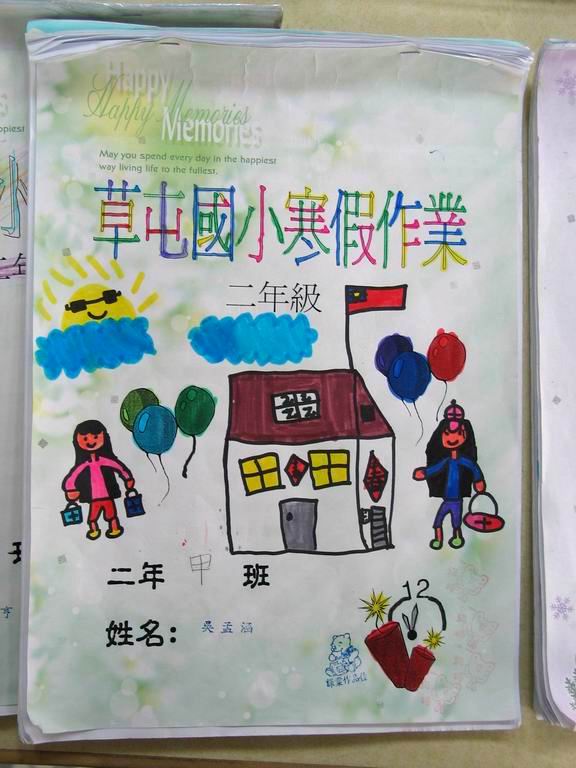 Happy
Happy Memories
Memories
May you spend every day in the happiest
way living life to the fullest.
草屯國小寒假作業
二年級
二年 甲 班
姓名: 吳孟涵
12